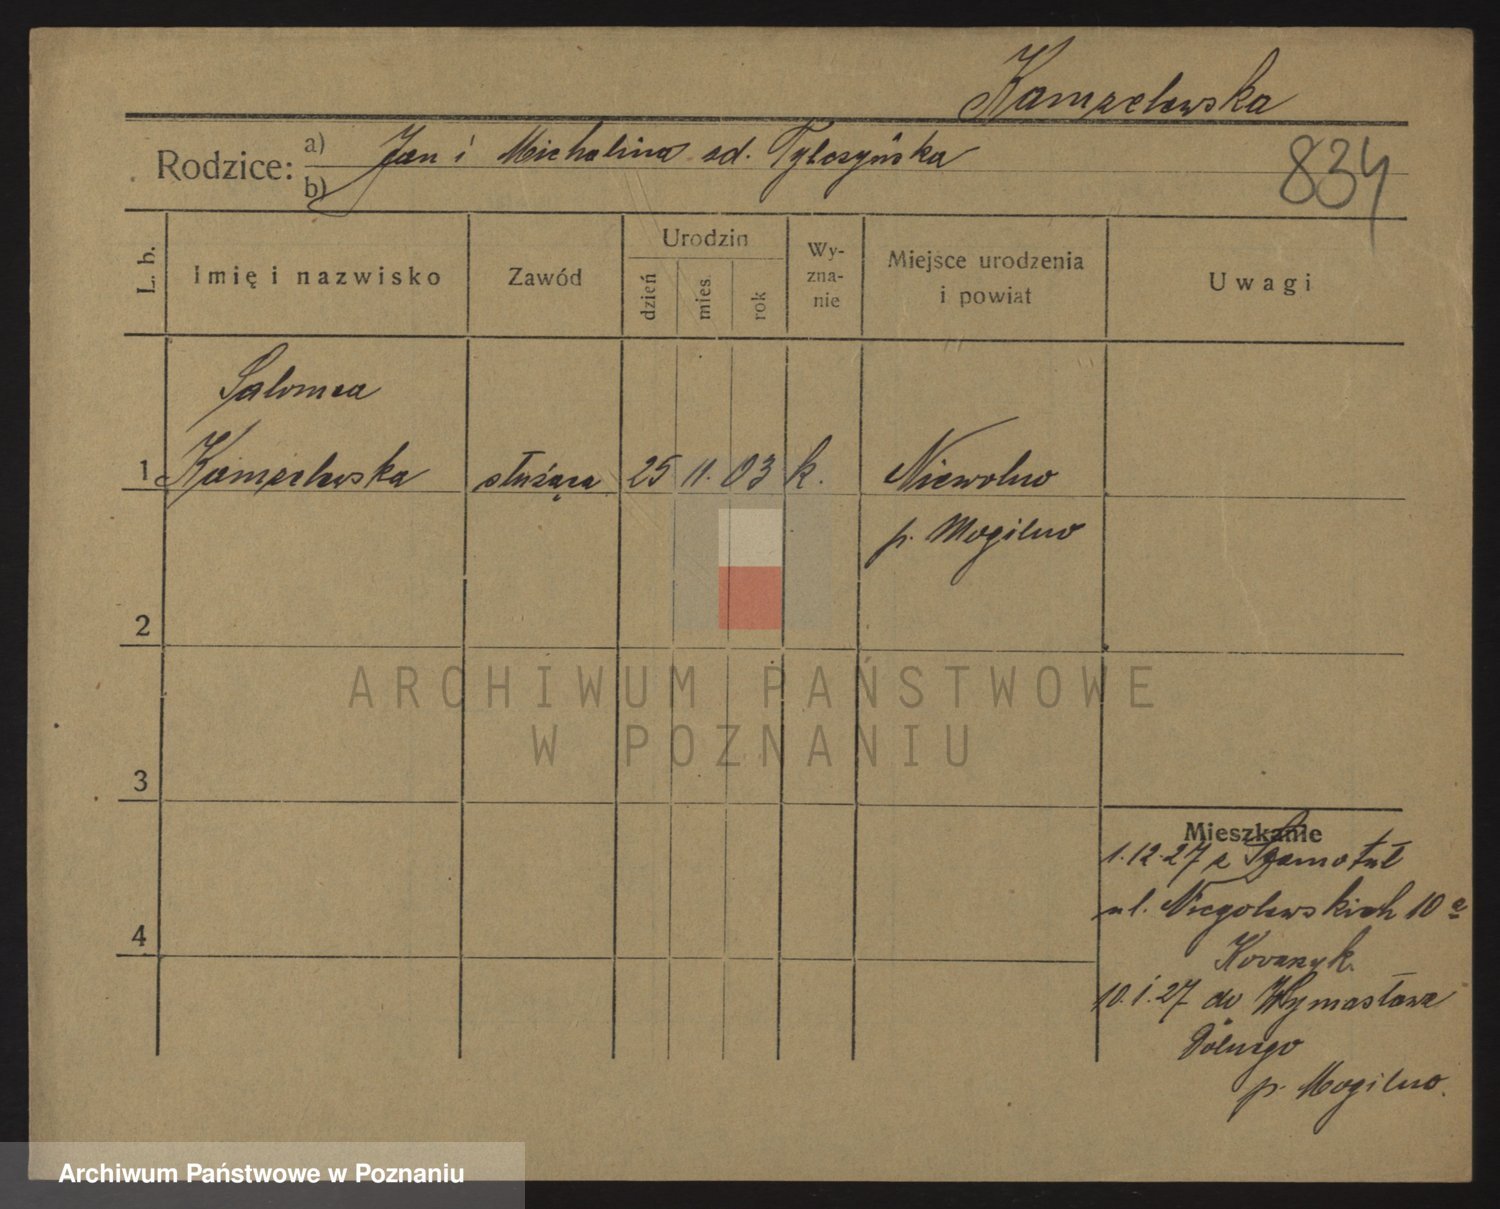 Kamzelewska
Rodzice: a) Jan i Michalina sd. Tylczyńska
b)
834
L. b.
Imię i nazwisko
Zawód
Urodzin
dzień
mies.
rok
Wy-
zna-
nie
Miejsce urodzenia
i powiat
Uwagi
Salomea
1 Kamzelewska służąca 25 11. 03 k. Niewolno
p. Mogilno
2
3
4
Mieszkanie
1.12.27 z Szamotuł
ul. Niegolewskich 10 a
10.1.27 do Wymysłowa
Dolnego
p. Mogilno.
ARCHIWUM PAŃSTWOWE
W POZNANIU
Archiwum Państwowe w Poznaniu